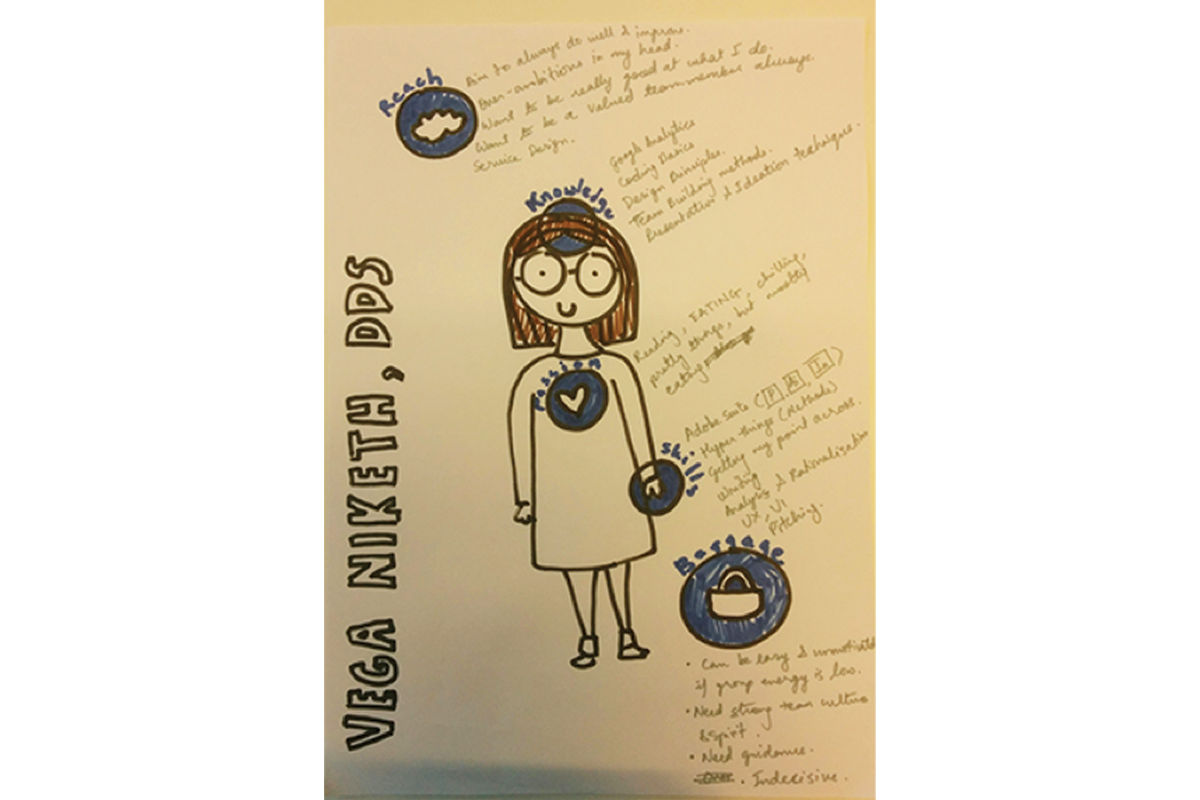 VEGA NIKETH, DDS
Reach
Aim to always do well & improve.
Over-ambitions in my head.
Want to be really good at what I do.
Want to be a valued teammember always.
Service Design.
Knowledge
Google Analytics
Coding Basics
Design Principles.
Team Building methods.
Presentation & Ideation technique.
Passion
Reading, EATING, chilling,
pretty things, but mostly
eating
Skills
Adobe Suite (P, Ai, In)
Hyper things (methods)
Getting my point across.
Writing
Analysis & Rationalisation
UX, UI
Pitching.
Baggage
• Can be easy & unmotivated
if group energy is low.
• Need strong team culture
& spirit.
• Need guidance.
• Indecisive.